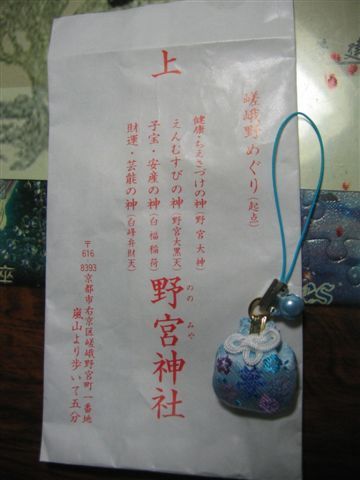 上
嵯峨野めぐり(起点)
健康・ちえさづけの神(野宮大神)
えんむすびの神(野宮大黒天)
子宝・安産の神(白福稲荷)
財運・芸能の神(白峰弁財天)
野宮神社
ののみや
〒616-8393
京都市右京区嵯峨野宮町一番地
嵐山より歩いて五分